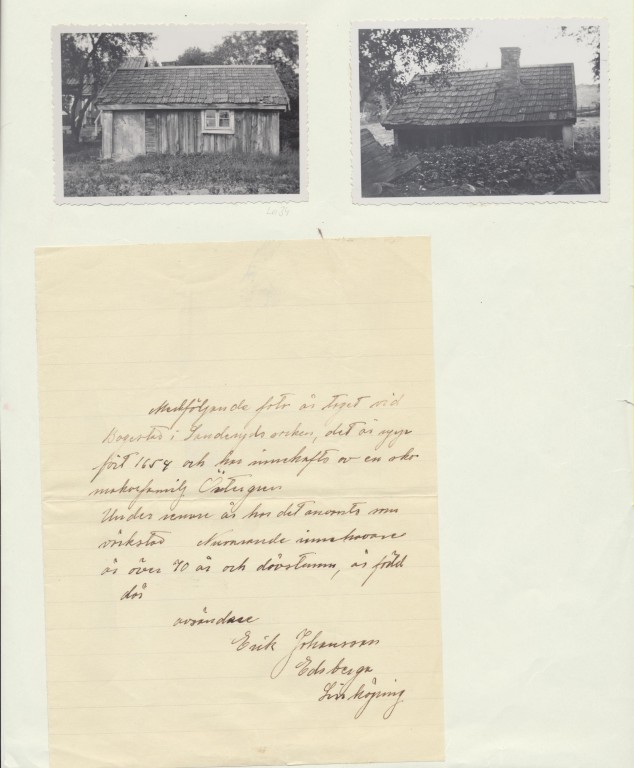 Medföljande foto är taget vid
Bogestad i Landeryds socken, det är upp
fört 1654 och har innehafts av en sko
makarefamilj Östergren
Under senare år har det använts som
verkstad Nuvarande innehavare
är över 70 år och dövstum, är född
där
avsändare
Erik Johansson
Edsberga
Linköping